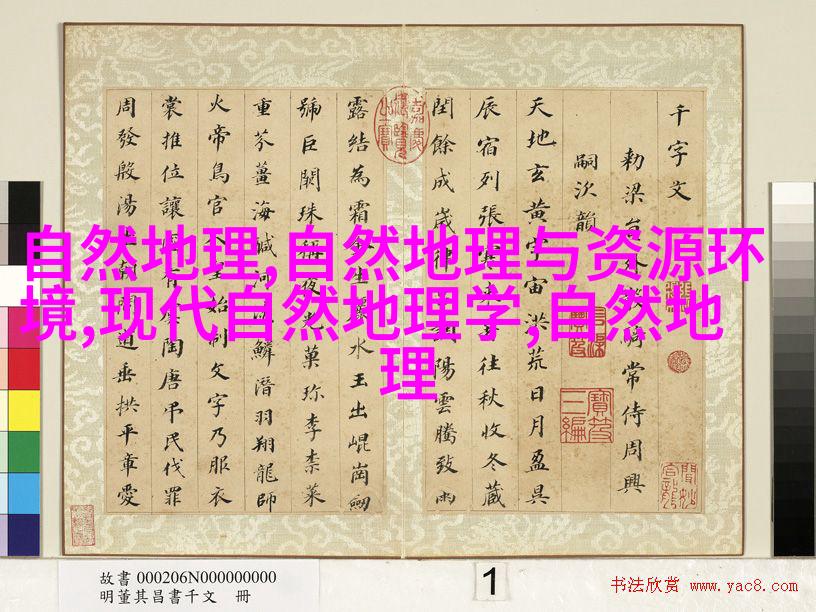 自然地理,自然地理与资源环
境,现代自然地理学,自然地
理
千字文
勅梁外散騎常侍周興
嗣次韻
天地玄黃宇宙洪荒日月盈昃
辰宿列張寒來暑往秋收冬藏
閏餘成歲律陽雲騰致雨
露結為霜金生麗水玉出崐崗劒
號巨闕珠稱夜光菓珍李柰菜
重芥薑海鹹河淡鱗潛羽翔龍師
火帝鳥官人皇始制文字乃服衣
裳推位讓國有虞陶唐弔民伐罪
周發殷湯坐朝問道垂拱平章愛
嘉慶御覽之寶
寶笈三編
故書 000206N000000000
明董其昌書千文 冊
1
书法欣赏 www.yac8.com